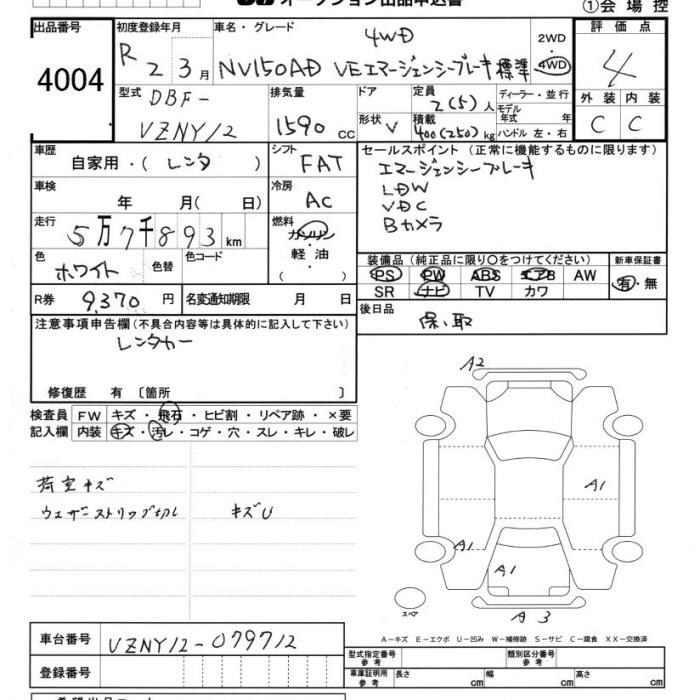 オークション出品申込書
①会場控
出品番号
4004
初度登録年月
R 2 3月
車名・グレード
4WD
NV150AD VEエマージェンシーブレーキ 標準
2WD
4WD
評価点
4
外装 内装
C C
型式
DBF-
VZNY12
排気量
1590 CC
ドア
形状 V
定員
2(5)人
積載
400(250)kg
ディーラー・並行
モデル年式 年
ハンドル 左・右
車歴
自家用・(レンタ)
シフト
FAT
車検
年 月(日)
冷房
AC
走行
5万7千893km
燃料
ガソリン・
軽油
( )
色
ホワイト
色替
色コード
R券 9,370円
名変通知期限 月 日
セールスポイント (正常に機能するものに限ります)
エマージェンシーブレーキ
LDW
VDC
Bカメラ
装備品(純正品に限り○をつけてください)
PS PW ABS エアB AW
SR ナビ TV カワ
新車保証書
有・無
後日品
保、取
注意事項申告欄(不具合内容等は具体的に記入して下さい)
レンタカー
修復歴 有〔箇所 〕
検査員
記入欄
FW キズ・飛石・ヒビ割・リペア跡・×要
内装 キズ・汚レ・コゲ・穴・スレ・キレ・破レ
荷室キズ
ウェザーストリップ切レ キズU
A2
A1
A1
A1
スペア
A3
A−キズ E−エクボ U−凹み W−補修跡 S−サビ C−腐食 XX−交換済
車台番号 VZNY12-079712
登録番号
型式指定番号
参考
類別区分番号
参考
車庫証明用
参考
長さ cm 幅 cm 高さ cm